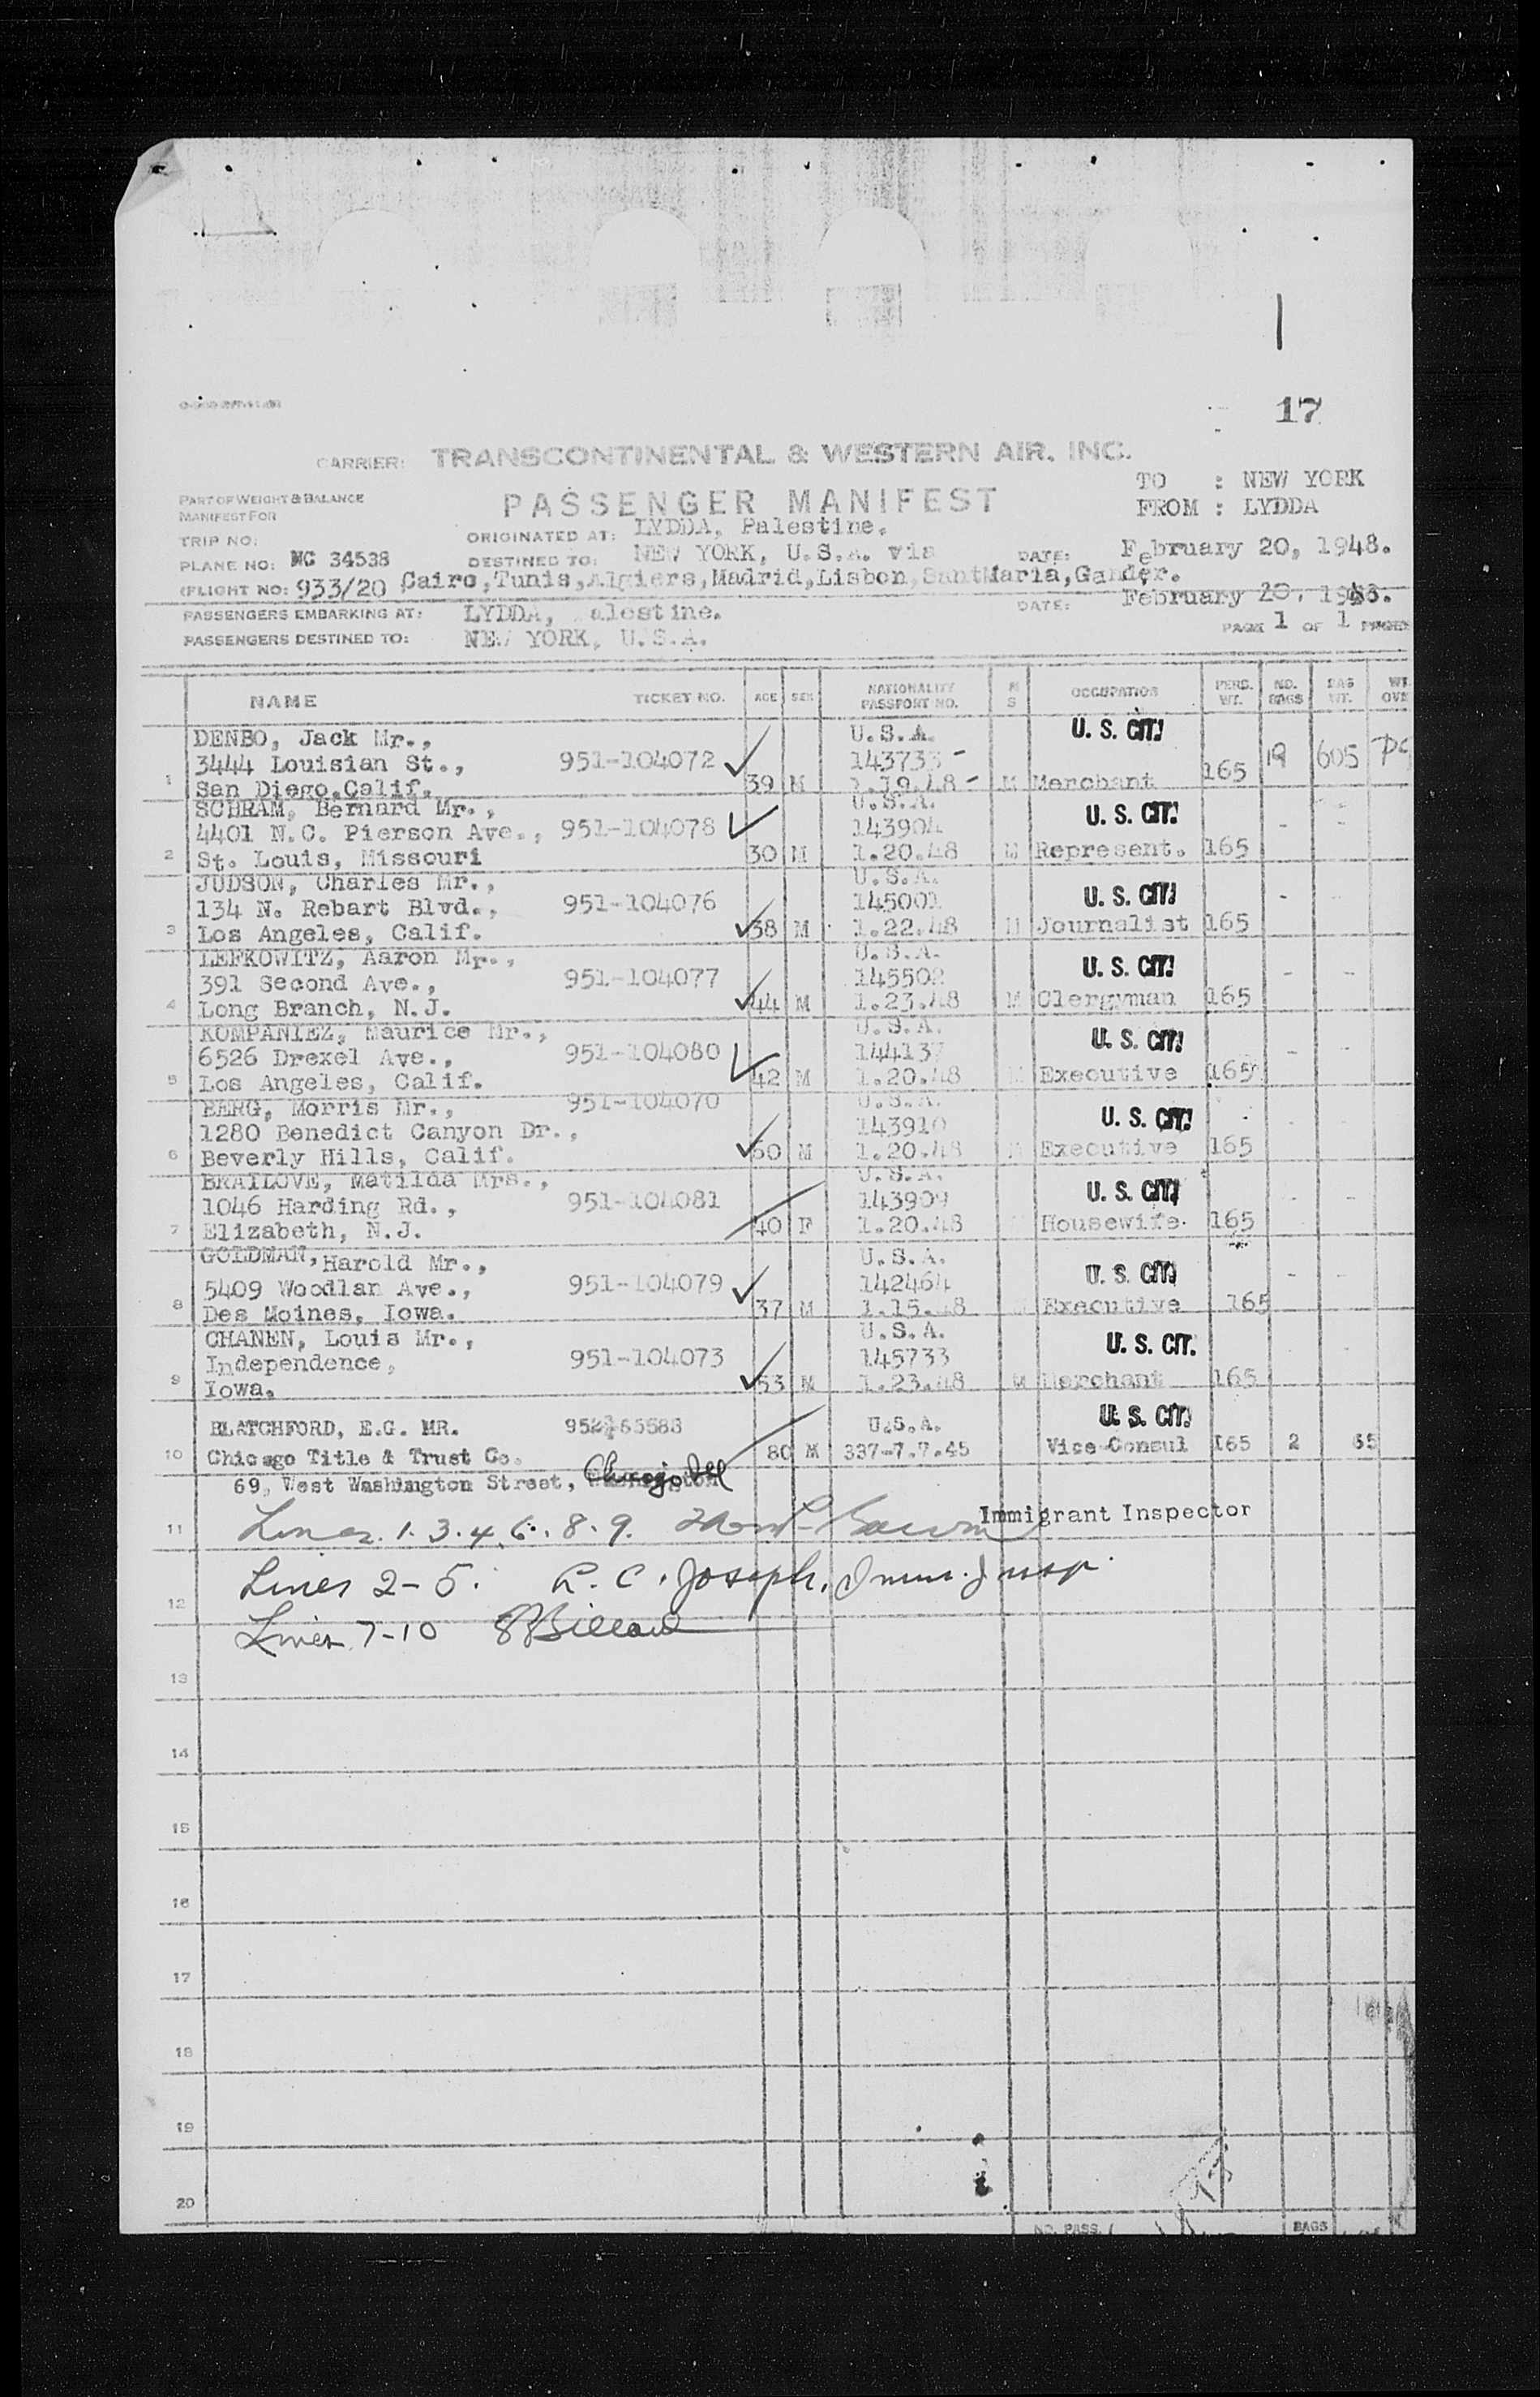 17
CARRIER: TRANSCONTINENTAL & WESTERN AIR. INC.
TO : NEW YORK
PART OF WEIGHT & BALANCE
PASSENGER MANIFEST
FROM : LYDDA
MANIFEST FOR
TRIP NO:
ORIGINATED AT: LYDDA, Palestine.
PLANE NO: NC 34538
DESTINED TO: NEW YORK, U.S.A. via
DATE: February 20, 1948.
(FLIGHT NO: 933/20 Cairo,Tunis,Algiers,Madrid,Lisbon,SantMaria,Gander.
PASSENGERS EMBARKING AT: LYDDA, alestine.
DATE: February 20, 1948.
PASSENGERS DESTINED TO: NEW YORK, U.S.A.
PAGE 1 OF 1 PAGES
NAME TICKET NO. AGE SEX NATIONALITY PASSPORT NO. M S OCCUPATION PERS. WT. NO. BAGS BAG WT. WT. OVR
DENBO, Jack Mr., U.S.A. U. S. CIT.
3444 Louisian St., 951-104072 143733 - 19 605
1 San Diego,Calif. 39 M 1.19.48 - M Merchant 165
SCHRAM, Bernard Mr., U.S.A. U. S. CIT.
4401 N.C. Pierson Ave., 951-104078 143904 -
2 St. Louis, Missouri 30 M 1.20.48 M Represent. 165
JUDSON, Charles Mr., U.S.A. U. S. CIT.
134 N. Rebart Blvd., 951-104076 145001 - -
3 Los Angeles, Calif. 38 M 1.22.48 M Journalist 165
LEFKOWITZ, Aaron Mr., U.S.A. U. S. CIT.
391 Second Ave., 951-104077 145502 - -
4 Long Branch, N.J. 44 M 1.23.48 M Clergyman 165
KOMPANIEZ, Maurice Mr., U.S.A. U. S. CIT.
6526 Drexel Ave., 951-104080 144137 - -
5 Los Angeles, Calif. 42 M 1.20.48 M Executive 165
BERG, Morris Mr., 951-104070 U.S.A. U. S. CIT.
1280 Benedict Canyon Dr., 143910
6 Beverly Hills, Calif. 50 M 1.20.48 M Executive 165
BRAILOVE, Matilda Mrs., U.S.A. U. S. CIT.
1046 Harding Rd., 951-104081 143909 - -
7 Elizabeth, N.J. 40 F 1.20.48 Housewife. 165
GOLDMAN, Harold Mr., U.S.A. U. S. CIT.
5409 Woodlan Ave., 951-104079 142464 - -
8 Des Moines, Iowa. 37 M 1.15.48 Executive 165
CHANEN, Louis Mr., U.S.A. U. S. CIT.
Independence, 951-104073 145733
9 Iowa. 53 M 1.23.48 M Merchant 165
BLATCHFORD, E.G. MR. U.S.A. U. S. CIT.
10 Chicago Title & Trust Co. 80 M 337-7.7.45 Vice-Consul 165 2 65
69, West Washington Street, Chicago Ill
11 Lines. 1. 3. 4. 6. 8. 9. Immigrant Inspector
12 Lines 2-5. R. C. Joseph, Imm. Insp.
Lines 7-10
13
14
15
16
17
18
19
20
NO. PASS. BAGS